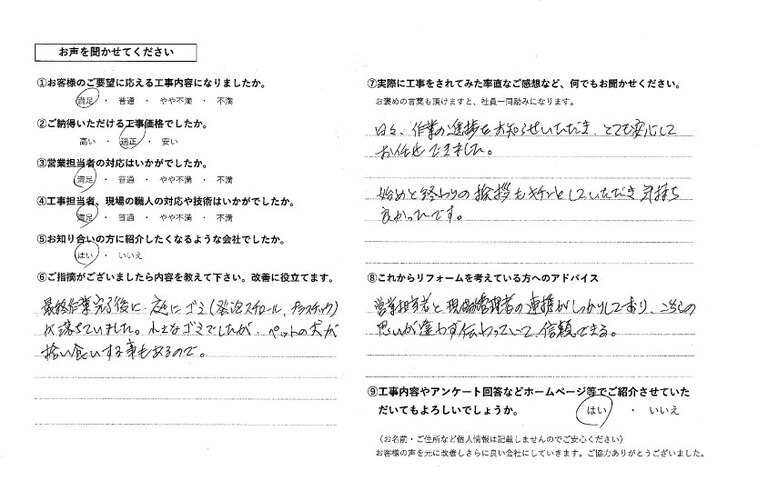 お声を聞かせてください
①お客様のご要望に応える工事内容になりましたか。
満足 ・ 普通 ・ やや不満 ・ 不満
②ご納得いただける工事価格でしたか。
高い ・ 適正 ・ 安い
③営業担当者の対応はいかがでしたか。
満足 ・ 普通 ・ やや不満 ・ 不満
④工事担当者、現場の職人の対応や技術はいかがでしたか。
満足 ・ 普通 ・ やや不満 ・ 不満
⑤お知り合いの方に紹介したくなるような会社でしたか。
はい ・ いいえ
⑥ご指摘がございましたら内容を教えて下さい。改善に役立てます。
最終作業完了後に、庭にゴミ(発泡スチロール、プラスチック)
が落ちていました。小さなゴミでしたが、ペットの犬が
拾い食いする事もあるので。
⑦実際に工事をされてみた率直なご感想など、何でもお聞かせください。
お褒めの言葉も頂けますと、社員一同励みになります。
日々、作業の進捗をお知らせいただき、とても安心して
お任せできました。
始めと終わりの挨拶もキチンとしていただき気持ち
良かったです。
⑧これからリフォームを考えている方へのアドバイス
営業担当者と現場管理者の連携がしっかりしており、こちらの
思いが違わず伝わっていて、信頼できる。
⑨工事内容やアンケート回答などホームページ等でご紹介させていた
だいてもよろしいでしょうか。 はい ・ いいえ
(お名前・ご住所など個人情報は記載しませんのでご安心ください)
お客様の声を元に改善しさらに良い会社にしていきます。ご協力ありがとうございました。